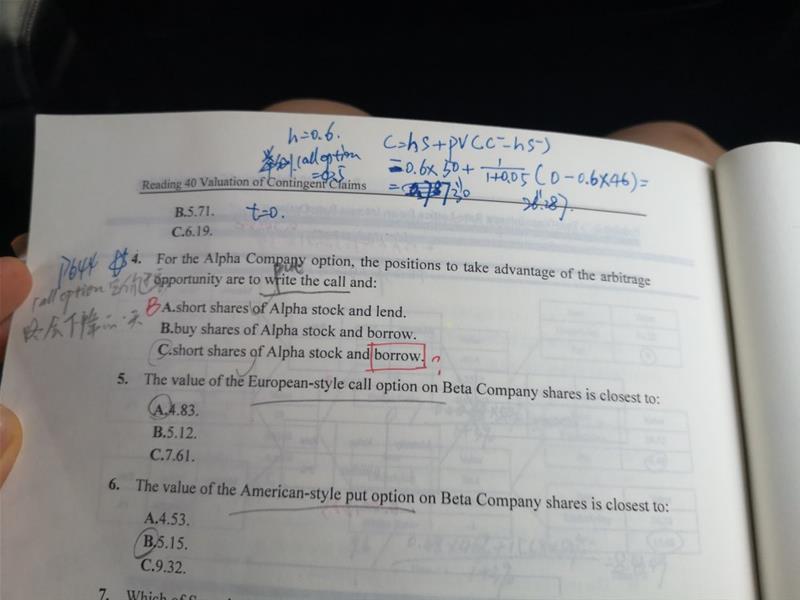 h=0.6.
call option
=0.5
C=hS+PV(C⁻-hS⁻)
=0.6×50+1/(1+0.05)(0-0.6×46)=
26.287
Reading 40 Valuation of Contingent Claims
B.5.71.
t=0.
C.6.19.
P644
4. For the Alpha Company option, the positions to take advantage of the arbitrage
opportunity are to write the call and:
call option
B A.short shares of Alpha stock and lend.
B.buy shares of Alpha stock and borrow.
C.short shares of Alpha stock and borrow. ?
5. The value of the European-style call option on Beta Company shares is closest to:
A.4.83.
B.5.12.
C.7.61.
6. The value of the American-style put option on Beta Company shares is closest to:
A.4.53.
B.5.15.
C.9.32.
7. Which of